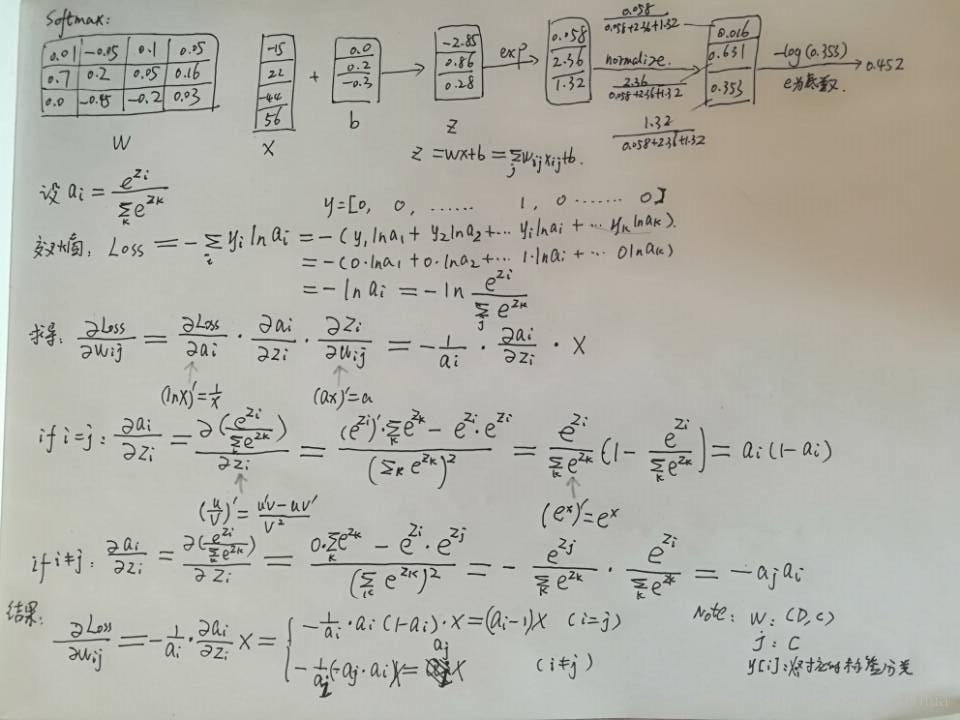 Softmax:
0.01 -0.05 0.1 0.05
0.7 0.2 0.05 0.16
0.0 -0.45 -0.2 0.03
W
-15
22
-44
56
X
+
0.0
0.2
-0.3
b
→
-2.85
0.86
0.28
Z
exp →
0.058
2.36
1.32
0.058/(0.058+2.36+1.32)
normalize.
2.36/(0.058+2.36+1.32)
1.32/(0.058+2.36+1.32)
0.016
0.631
0.353
-log(0.353) → 0.452
e为底数.
Z = wx+b = Σ_j w_ij x_ij + b.
设 a_i = e^{z_i} / Σ_k e^{z_k}
y=[0, 0, ...... 1, 0 ....... 0]
Loss = -Σ_i y_i ln a_i = -(y_1 ln a_1 + y_2 ln a_2 + ... y_i ln a_i + ... y_k ln a_k).
= -(0·ln a_1 + 0·ln a_2 + ... 1·ln a_i + ... 0 ln a_k)
= -ln a_i = -ln e^{z_i} / Σ_j e^{z_k}
求导: ∂Loss/∂w_ij = ∂Loss/∂a_i · ∂a_i/∂z_i · ∂z_i/∂w_ij = -1/a_i · ∂a_i/∂z_i · X
(lnx)'=1/x (ax)'=a
if i=j: ∂a_i/∂z_i = ∂(e^{z_i}/Σ_k e^{z_k})/∂z_i = ((e^{z_i})'·Σ_k e^{z_k} - e^{z_i}·e^{z_i})/(Σ_k e^{z_k})^2 = e^{z_i}/Σ_k e^{z_k} (1 - e^{z_i}/Σ_k e^{z_k}) = a_i(1-a_i)
(u/v)' = (u'v-uv')/v^2 (e^x)'=e^x
if i≠j: ∂a_i/∂z_i = ∂(e^{z_i}/Σ_k e^{z_k})/∂z_i = (0·Σ_k e^{z_k} - e^{z_i}·e^{z_j})/(Σ_k e^{z_k})^2 = -e^{z_j}/Σ_k e^{z_k} · e^{z_i}/Σ_k e^{z_k} = -a_j a_i
结果: ∂Loss/∂w_ij = -1/a_i · ∂a_i/∂z_i X = { -1/a_i · a_i(1-a_i)·X = (a_i-1)X (i=j)
-1/a_i(-a_j·a_i)X = a_j X (i≠j)
Note: W: (D,C)
j: C
y[i]: